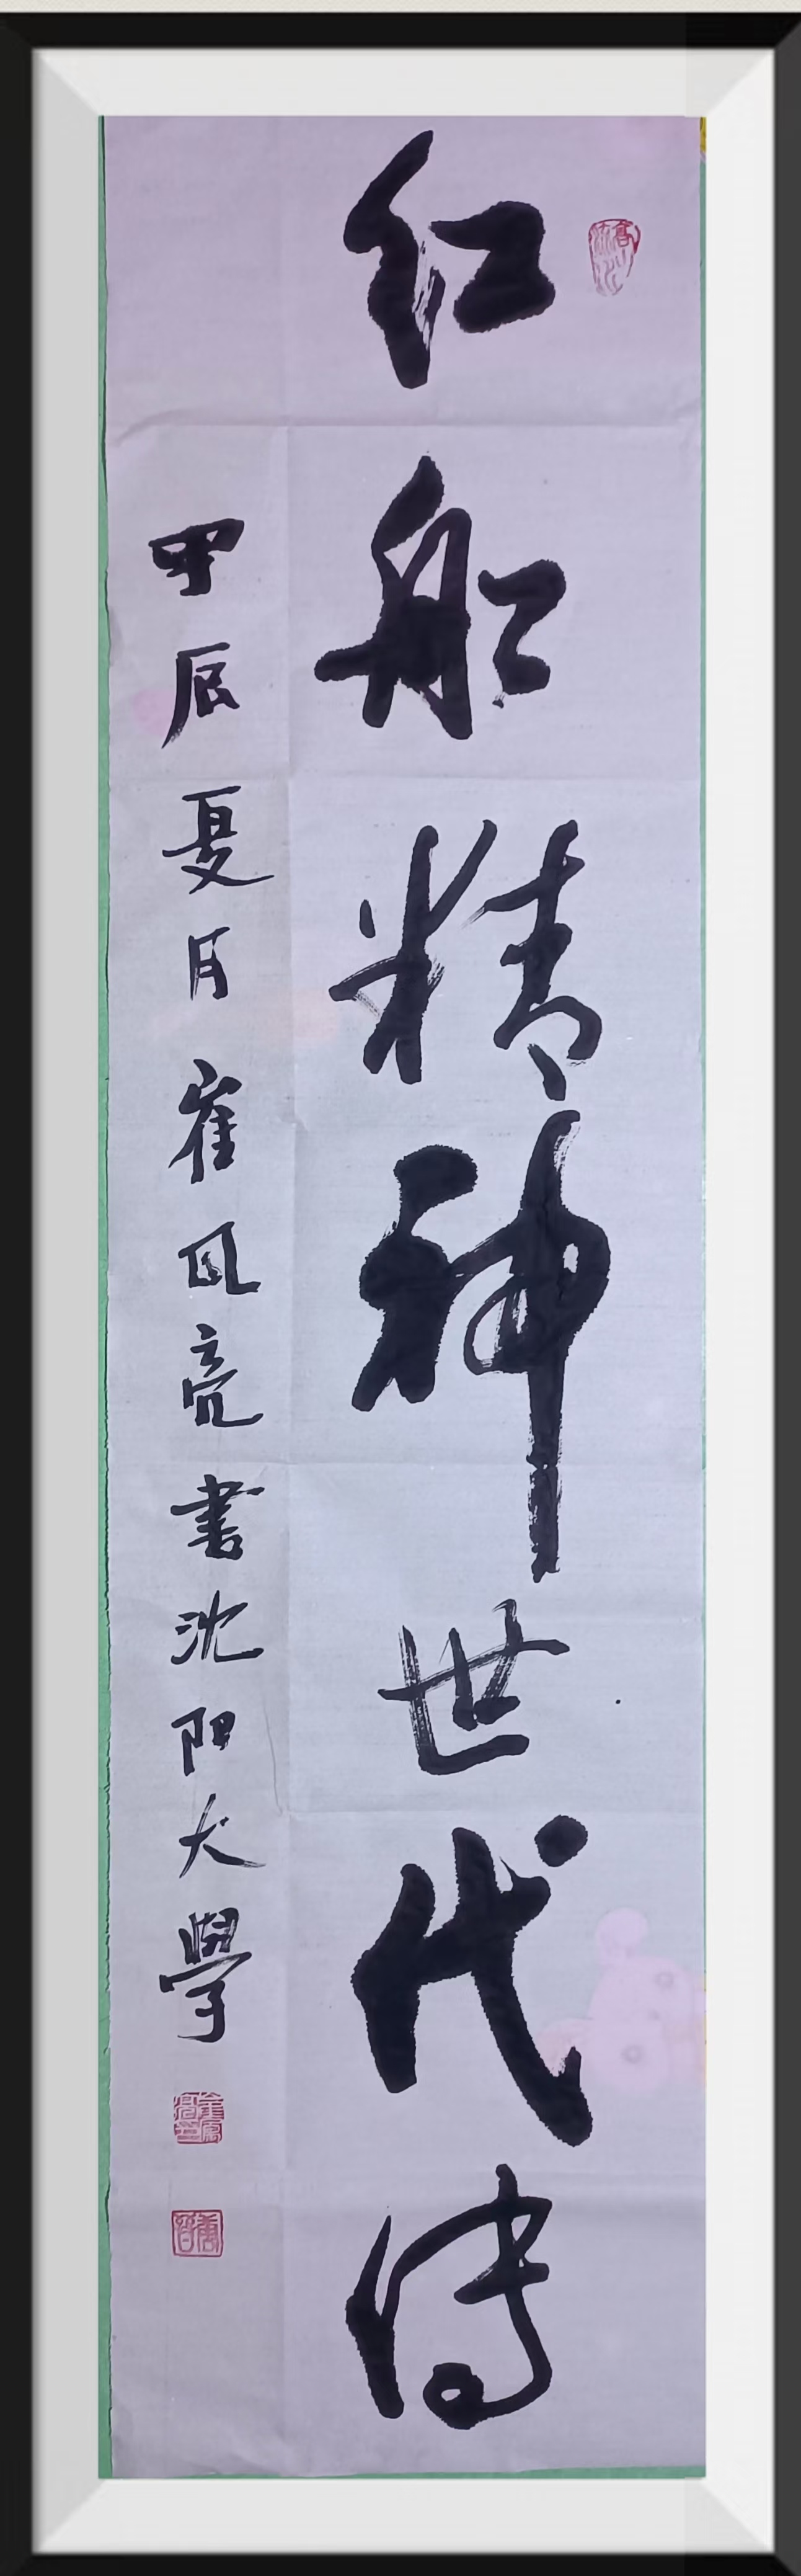 红船精神世代传
甲辰夏月崔凤亮书沈阳大學